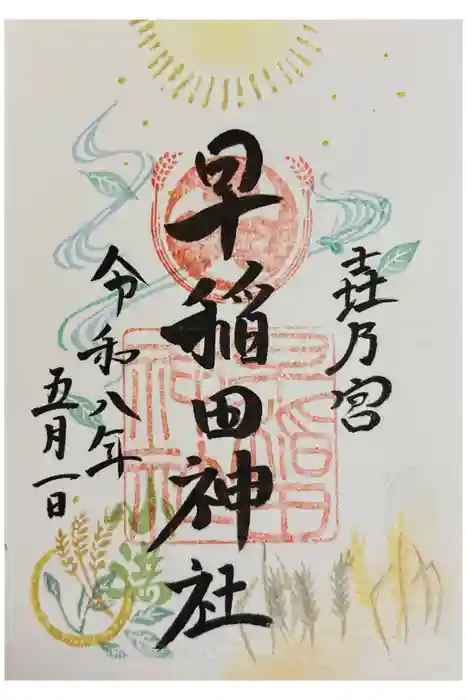 乃宮
早稲田神社
令和八年
五月一日
小満